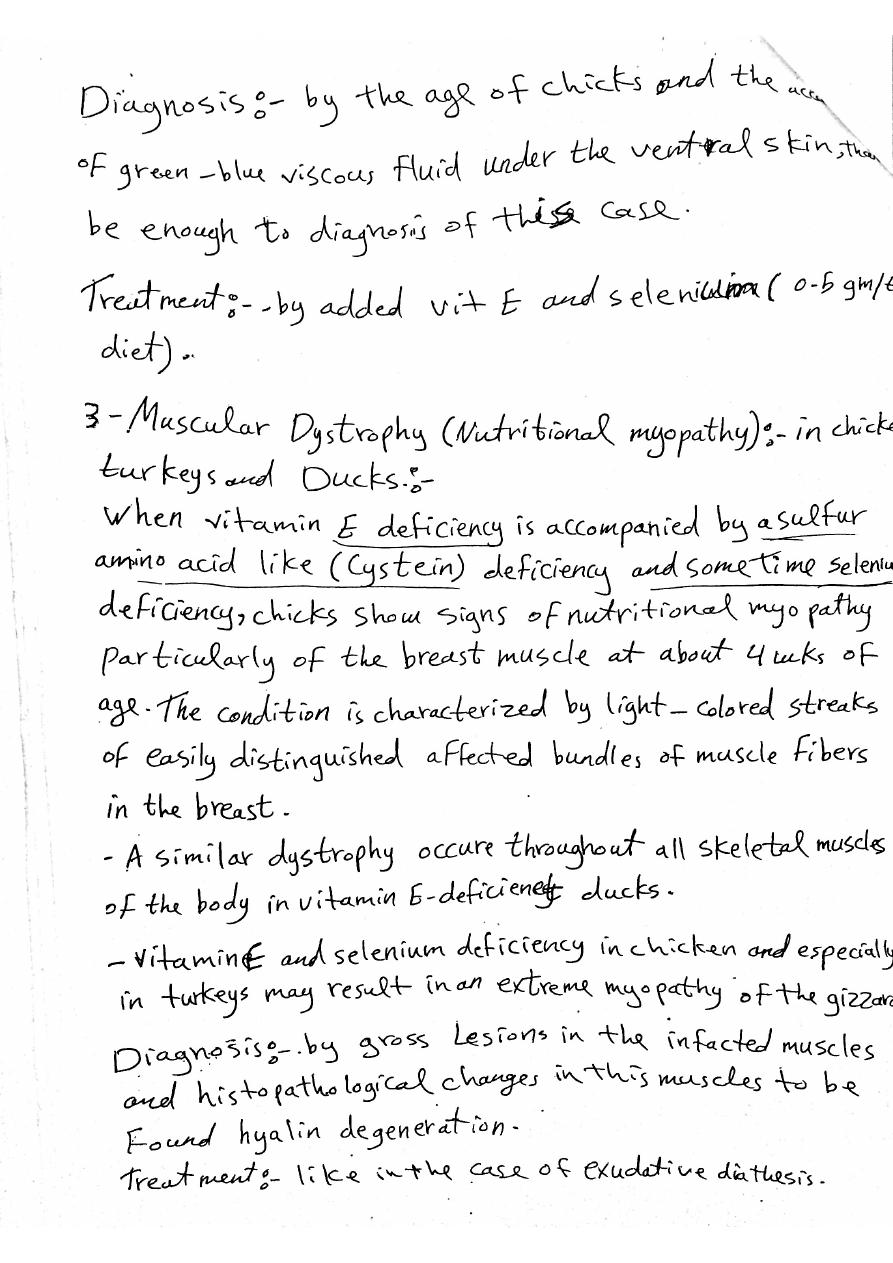 Diagnosis:- by the age of chicks and the
of green-blue viscous fluid under the ventral skin,
be enough to diagnosis of this case.
Treatment:- -by added vit E and selenium ( 0-5 gm/t
diet).
3-Muscular Dystrophy (Nutritional myopathy):- in chicke
turkeys and Ducks.:-
When vitamin E deficiency is accompanied by a sulfur
amino acid like (Cystein) deficiency and sometime seleniu
deficiency, chicks show signs of nutritional myopathy
particularly of the breast muscle at about 4 wks of
age. The condition is characterized by light-colored streaks
of easily distinguished affected bundles of muscle fibers
in the breast.
- A similar dystrophy occure throughout all skeletal muscles
of the body in vitamin E-deficienet ducks.
- Vitamin E and selenium deficiency in chicken and especially
in turkeys may result in an extreme myopathy of the gizzard
Diagnosis:-.by gross Lesions in the infacted muscles
and histopathological changes in this muscles to be
Found hyalin degeneration.
Treatment:- like in the case of exudative diathesis.